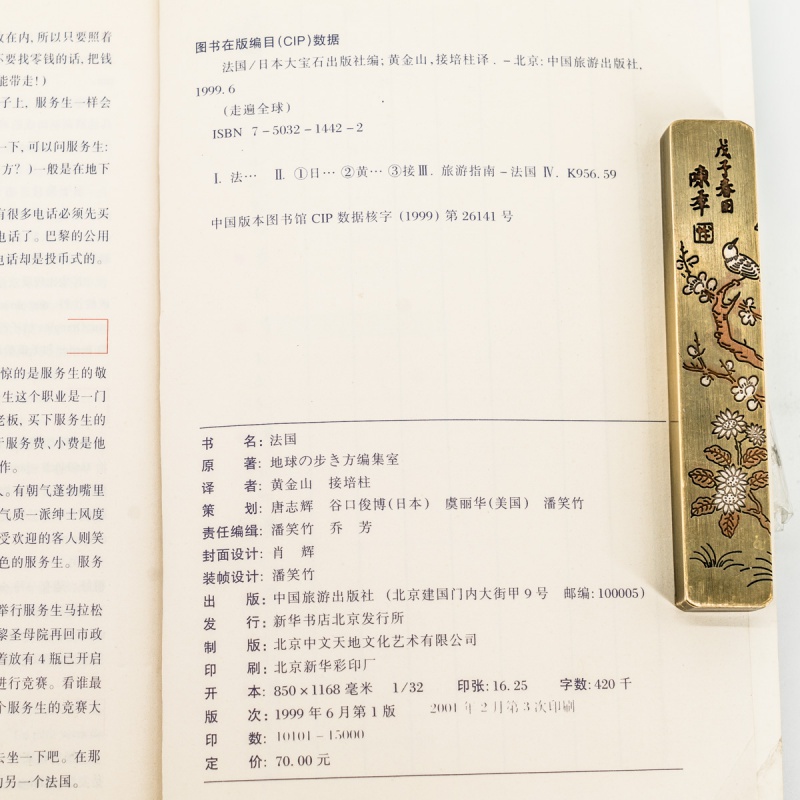 在内,所以只要照着
不要找零钱的话,把钱
能带走!)
子上,服务生一样会
一下,可以问服务生:
方?)一般是在地下
有很多电话必须先买
电话了。巴黎的公用
电话却是投币式的。
惊的是服务生的敬
生这个职业是一门
老板,买下服务生的
服务费、小费是他
作。
。有朝气蓬勃嘴里
气质一派绅士风度
受欢迎的客人则笑
色的服务生。服务
举行服务生马拉松
黎圣母院再回市政
着放有4瓶已开启
进行竞赛。看谁最
个服务生的竞赛大
去坐一下吧。在那
的另一个法国。
图书在版编目(CIP)数据
法国/日本大宝石出版社编;黄金山,接培柱译.-北京:中国旅游出版社,
1999.6
(走遍全球)
ISBN 7-5032-1442-2
Ⅰ.法… Ⅱ.①日…②黄…③接Ⅲ.旅游指南-法国 Ⅳ.K956.59
中国版本图书馆CIP数据核字(1999)第26141号
书 名:法国
原 著:地球の步き方编集室
译 者:黄金山 接培柱
策 划:唐志辉 谷口俊博(日本) 虞丽华(美国) 潘笑竹
责任编缉:潘笑竹 乔 芳
封面设计:肖 辉
装帧设计:潘笑竹
出 版:中国旅游出版社 (北京建国门内大街甲9号 邮编:100005)
发 行:新华书店北京发行所
制 版:北京中文天地文化艺术有限公司
印 刷:北京新华彩印厂
开 本:850×1168毫米 1/32 印张:16.25 字数:420千
版 次:1999年6月第1版 2001年2月第3次印刷
印 数:10101-15000
定 价:70.00元
戊子春日
陳年